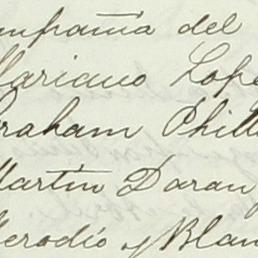 ompañia del
Mariano Lope
braham Phill
Martín Daran
Merodio y Blan